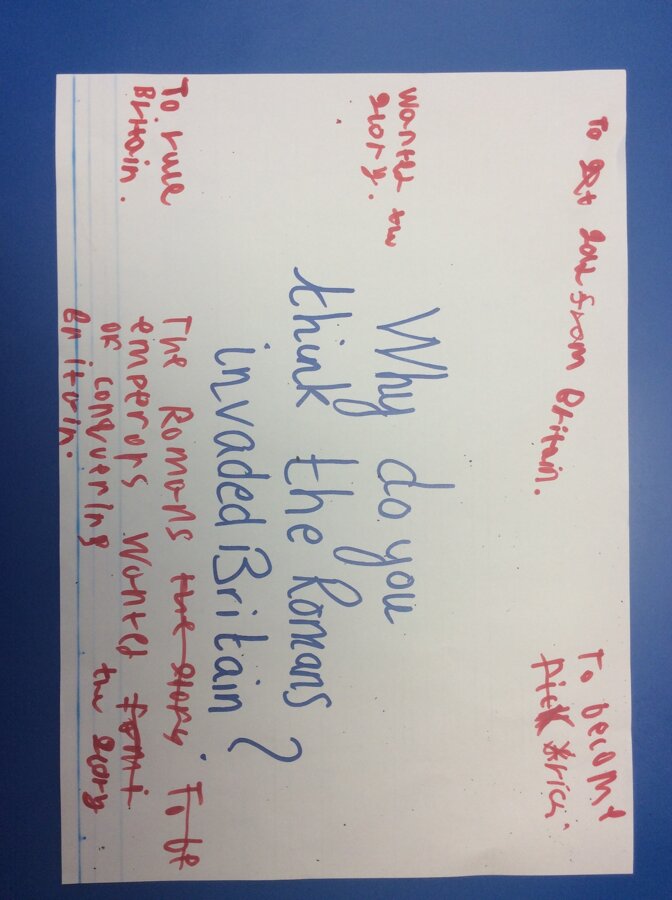 To get from Britain.
To become
Wanted the
glory.
Why do you
think the Romans
invaded Britain?
To rule
Britain.
The Romans the glory. To be
emperors wanted
the glory
of conquering
Britain.